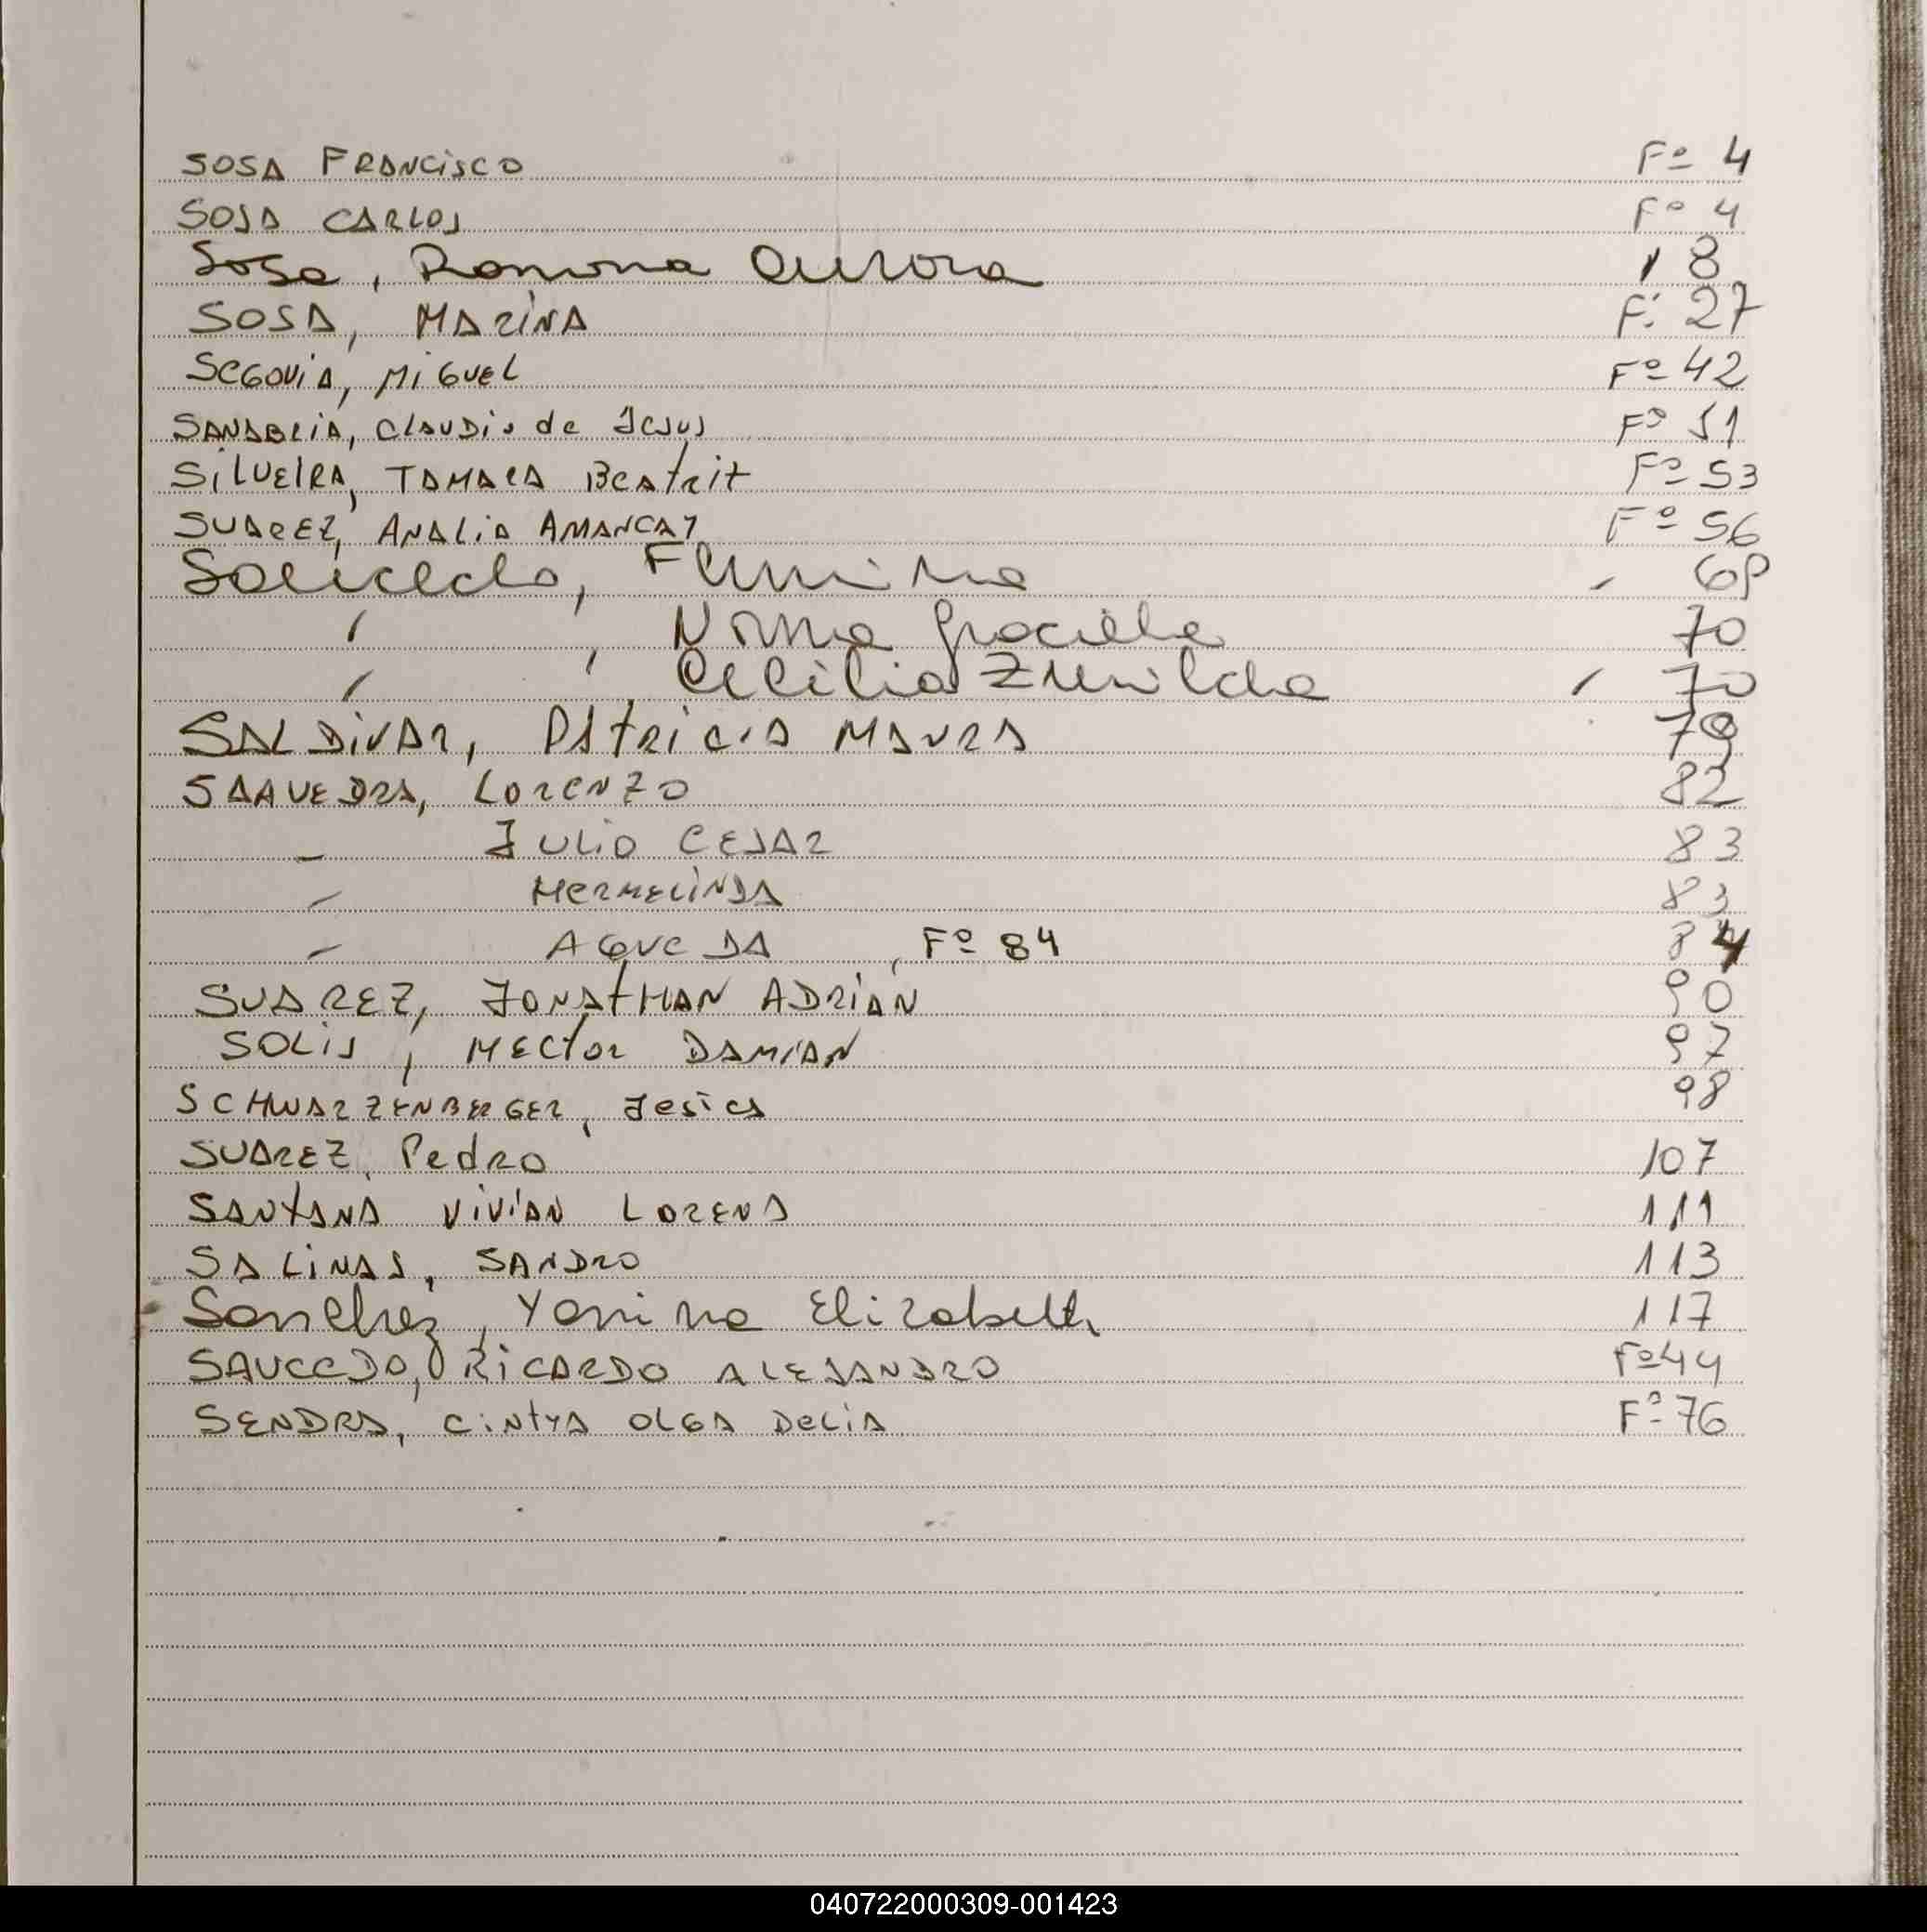 SOSA FRANCISCO Fº 4
SOSA CARLOS Fº 4
Sosa, Ramona Aurora " 8
SOSA, MARINA F: 27
SEGOVIA, MIGUEL Fº 42
SANABRIA, CLAUDIO de JESUS Fº 51
SILVEIRA, TAMARA BEATRIT Fº 53
SUAREZ, ANALIA AMANCAY Fº 56
70
" " Norma Graciela 70
" Cecilia Zunilda " 70
SALDIVAR, PATRICIA MAURA 79
SAAVEDRA, LORENZO 82
- JULIO CESAR 83
" HERMELINDA 83
" AGUEDA, Fº 84 84
SUAREZ, JONATHAN ADRIAN 90
SOLIS, HECTOR DAMIAN 97
SCHWARZZENBERGER, Jesica 98
SUAREZ, Pedro 107
SANTANA VIVIAN LORENA 111
SALINAS, SANDRO 113
Sanchez, Yanina Elizabeth 117
SAUCEDO, RICARDO ALEJANDRO Fº 44
SENDRA, CINTYA OLGA DELIA Fº 76
040722000309-001423